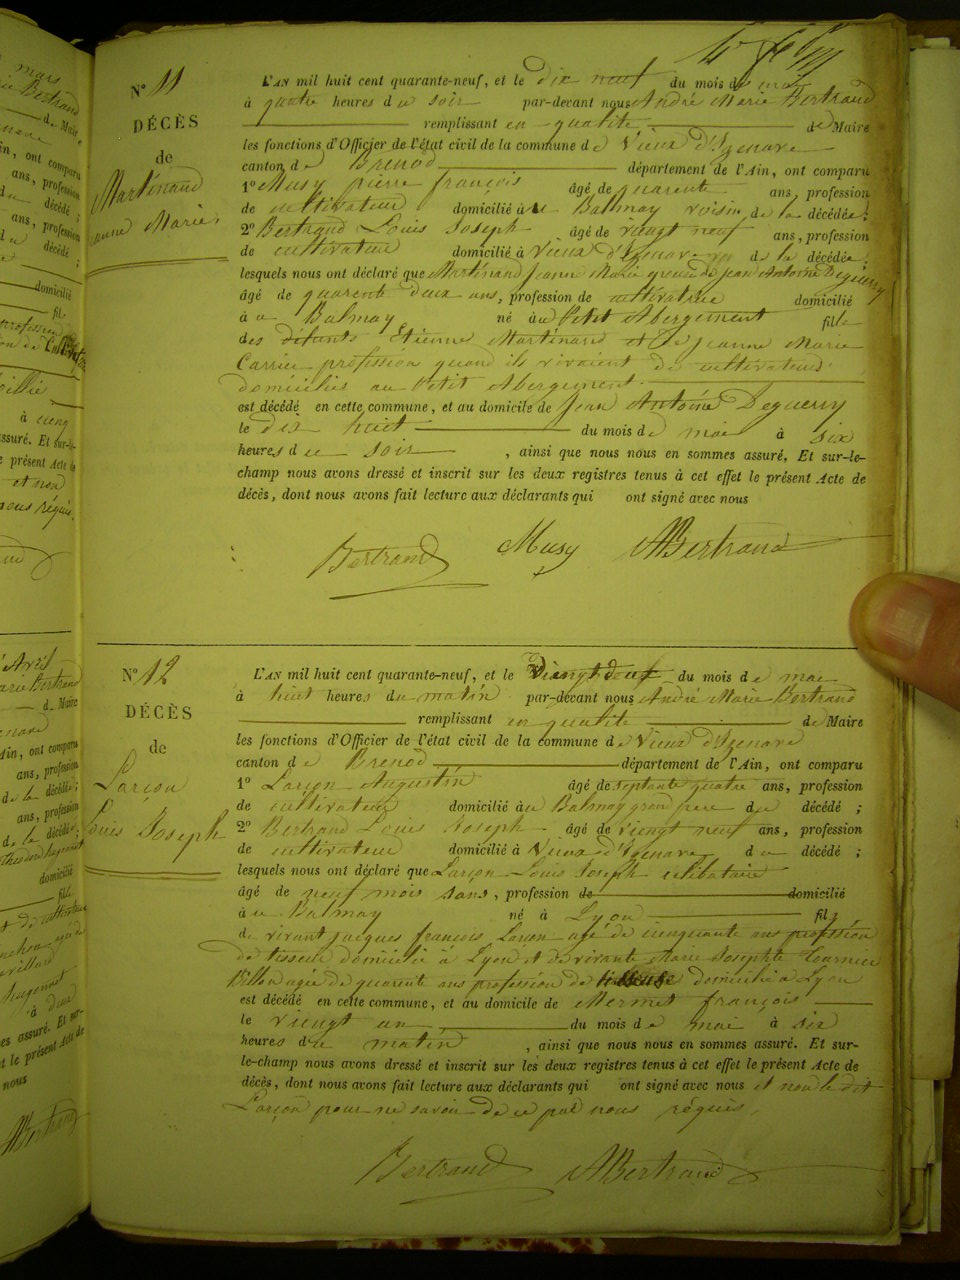 N° 11
DÉCÈS
de
Martinand
Jeanne Marie
L'AN mil huit cent quarante-neuf, et le dix neuf du mois de mai
à quatre heures du soir par-devant nous André Marie Bertrand
remplissant en qualité de Maire
les fonctions d'Officier de l'état civil de la commune de Vieux d'Izenave
canton de Brenod département de l'Ain, ont comparu
1° Musy pierre françois âgé de quarente ans, profession
de cultivateur domicilié à Balmay voisin de la décédée ;
2° Bertrand Louis Joseph âgé de viengt neuf ans, profession
de cultivateur domicilié à Vieux d'Izenave de la décédée ;
lesquels nous ont déclaré que Martinand Jeanne Marie de Jean Antoine Deguerry
âgé de quarente deux ans, profession de cultivatrice domicilié
à Balmay né au Petit Abergement fille
des défunts Etienne Martinand et de Jeanne Marie
Carrier profession quand ils vivaient de cultivateurs
domiciliés au Petit Abergement
est décédé en cette commune, et au domicile de Jean Antoine Deguerry
le dix huit du mois de mai à six
heures du soir , ainsi que nous nous en sommes assuré. Et sur-le-
champ nous avons dressé et inscrit sur les deux registres tenus à cet effet le présent Acte de
décès, dont nous avons fait lecture aux déclarants qui ont signé avec nous
Bertrand Musy AMBertrand
N° 12
DÉCÈS
de
Larçon
Louis Joseph
L'AN mil huit cent quarante-neuf, et le viengt deux du mois de mai
à huit heures du matin par-devant nous André Marie Bertrand
remplissant en qualité de Maire
les fonctions d'Officier de l'état civil de la commune de Vieux d'Izenave
canton de Brenod département de l'Ain, ont comparu
1° Larçon Augustin âgé de septante quatre ans, profession
de cultivateur domicilié à Balmay gran pere du décédé ;
2° Bertrand Louis Joseph âgé de viengt neuf ans, profession
de cultivateur domicilié à Vieux d'Izenave du décédé ;
lesquels nous ont déclaré que Larçon Louis Joseph célibataire
âgé de neuf mois sans, profession de domicilié
à Balmay né à Lyon fils
de vivant Jacques françois Larçon agé de cienquante ans profession
de tisseur domicilié à Lyon et de vivante Marie Josephte Tournier
Billon agée de quarente ans profession de tisseuse domicilié à Lyon
est décédé en cette commune, et au domicile de Mermet françois
le viengt un du mois de mai à six
heures du matin , ainsi que nous nous en sommes assuré. Et sur-
le-champ nous avons dressé et inscrit sur les deux registres tenus à cet effet le présent Acte de
décès, dont nous avons fait lecture aux déclarants qui ont signé avec nous et non le dit
Larçon pour ne savoir de ce par nous réquis
Bertrand AMBertrand